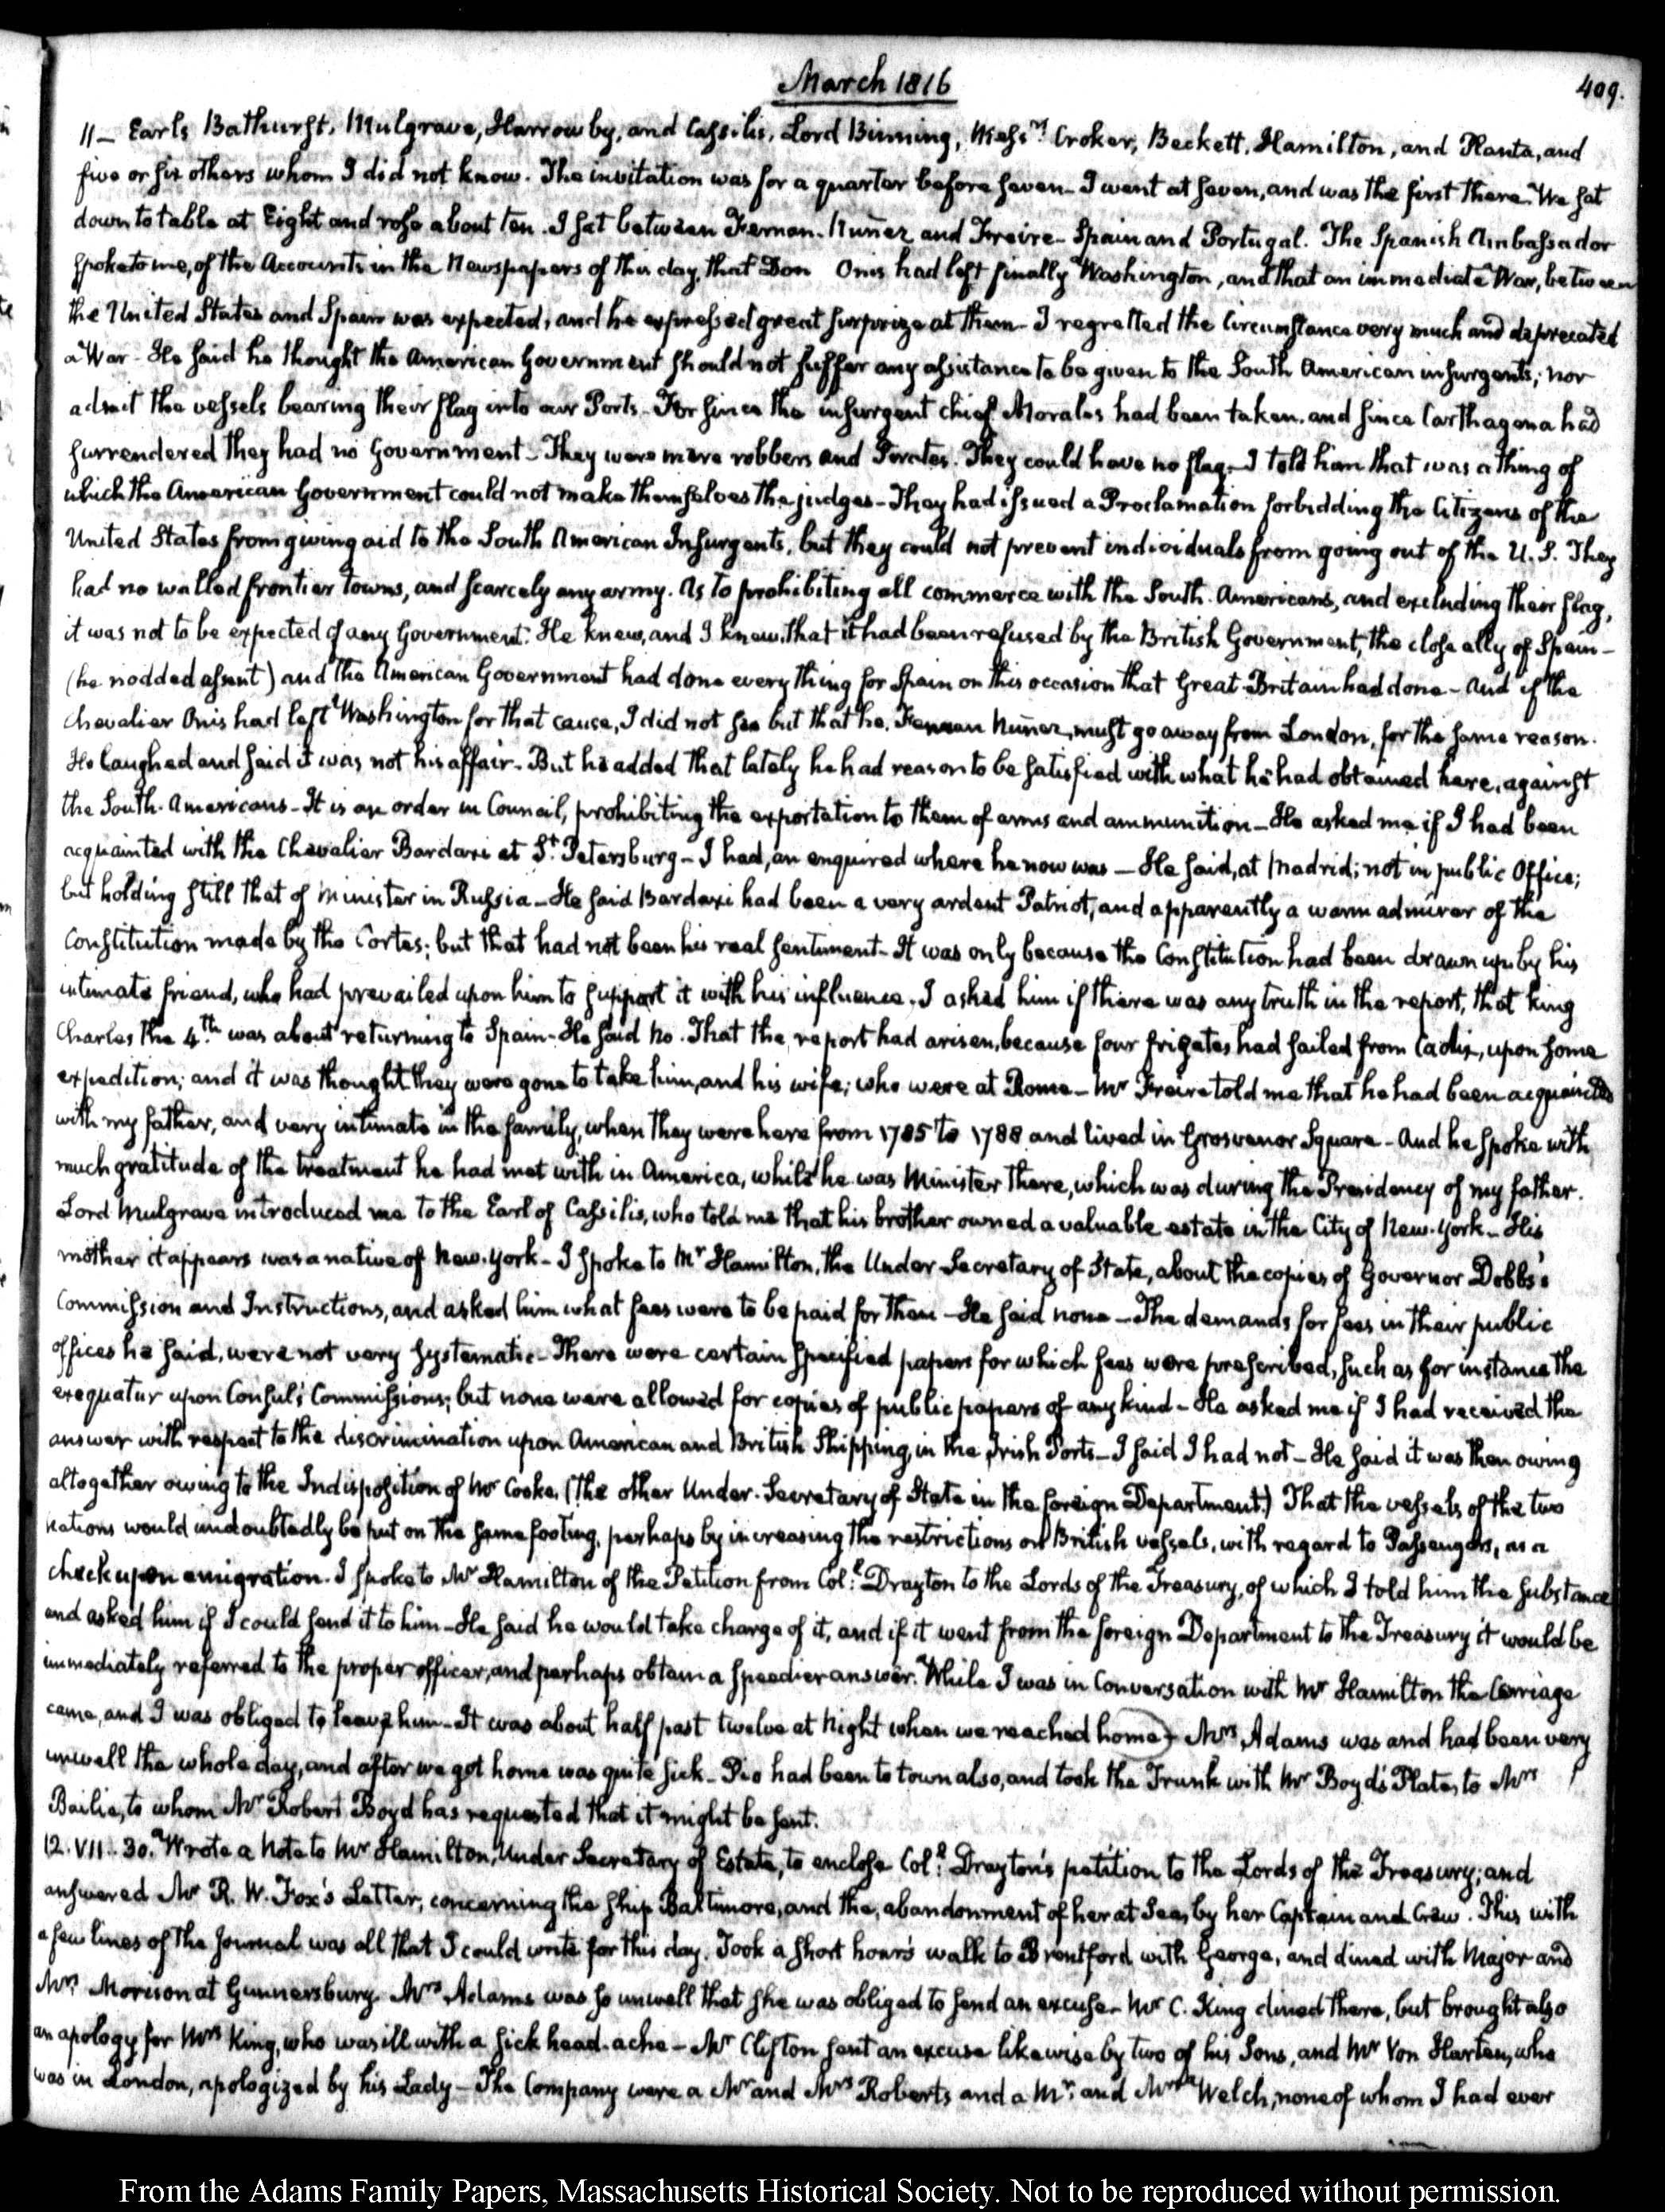 March 1816
409.
11- Earls Bathurst, Mulgrave, Harrowby, and Cassilis, Lord Binning, Messrs. Croker, Beckett, Hamilton, and Planta, and
five or six others whom I did not know. The invitation was for a quarter before seven- I went at seven, and was the first there. We sat
down to table at Eight and rose about ten. I sat between Fernan-Nuñez and Freire- Spain and Portugal. The Spanish Ambassador
spoke to me, of the Accounts in the Newspapers of this day, that Don Onis had left finally Washington, and that an immediate War, between
the United States and Spain was expected, and he expressed great surprize at them- I regretted the Circumstance very much and deprecated
a War- He said he thought the American Government should not suffer any assistance to be given to the South American insurgents; nor
admit the vessels bearing their flag into our Ports- For since the insurgent chief Morales had been taken, and since Carthagena had
surrendered they had no Government- They were mere robbers and Pirates. They could have no flag- I told him that was a thing of
which the American Government could not make themselves the judges- They had issued a Proclamation forbidding the Citizens of the
United States from giving aid to the South American Insurgents, but they could not prevent individuals from going out of the U.S. They
had no walled frontier towns, and scarcely any army. As to prohibiting all commerce with the South-Americans, and excluding their flag,
it was not to be expected of any Government. He knew, and I knew, that it had been refused by the British Government, the close ally of Spain-
(he nodded assent) and the American Government had done every thing for Spain on this occasion that Great-Britain had done- And if the
Chevalier Onis had left Washington for that cause, I did not see but that he, Fernan Nuñez, must go away from London, for the same reason.
He laughed and said it was not his affair- But he added that lately he had reason to be satisfied with what he had obtained here, against
the South-Americans- It is an order in Council, prohibiting the exportation to them of arms and ammunition- He asked me if I had been
acquainted with the Chevalier Bardaxi at St. Petersburg- I had, an enquired where he now was- He said, at Madrid; not in public Office;
but holding still that of Minister in Russia- He said Bardaxi had been a very ardent Patriot, and apparently a warm admirer of the
Constitution made by the Cortes; but that had not been his real sentiment- It was only because the Constitution had been drawn up by his
intimate friend, who had prevailed upon him to support it with his influence. I asked him if there was any truth in the report, that king
Charles the 4.th was about returning to Spain- He said no. That the report had arisen, because four frigates had sailed from Cadix, upon some
expedition; and it was thought they were gone to take him, and his wife; who were at Rome- Mr Freire told me that he had been acquainted
with my father, and very intimate in the family, when they were here from 1785 to 1788 and lived in Grosvenor Square- And he spoke with
much gratitude of the treatment he had met with in America, while he was Minister there, which was during the Presidency of my father.
Lord Mulgrave introduced me to the Earl of Cassilis, who told me that his brother owned a valuable estate in the City of New-York- His
mother it appears was a native of New-York- I spoke to Mr Hamilton, the Under Secretary of State, about the copies of Governor Dobbs's
Commission and Instructions, and asked him what fees were to be paid for them- He said none- The demands for fees in their public
offices he said, were not very systematic- There were certain specified papers for which fees were prescribed, such as for instance the
exequatur upon Consul's Commissions; but none were allowed for copies of public papers of any kind- He asked me if I had received the
answer with respect to the discrimination upon American and British Shipping, in the Irish Ports- I said I had not- He said it was then owing
altogether owing to the Indisposition of Mr Cooke. (The other Under-Secretary of State in the foreign Department.) That the vessels of the two
nations would undoubtedly be put on the same footing, perhaps by increasing the restrictions on British vessels, with regard to Passengers, as a
check upon emigration. I spoke to Mr Hamilton of the Petition from Coll. Drayton to the Lords of the Treasury, of which I told him the substance
and asked him if I could send it to him- He said he would take charge of it, and if it went from the foreign Department to the Treasury it would be
immediately referred to the proper officer, and perhaps obtain a speedier answer. While I was in Conversation with Mr Hamilton the Carriage
came, and I was obliged to leave him- It was about half past twelve at Night when we reached home- Mrs Adams was and had been very
unwell the whole day, and after we got home was quite sick- Pio had been to town also, and took the Trunk with Mr Boyd's Plate, to Mrs
Bailie, to whom Mr Robert Boyd has requested that it might be sent.
12. VII. 30. Wrote a Note to Mr Hamilton, Under Secretary of Estate, to enclose Coll. Drayton's petition to the Lords of the Treasury; and
answered Mr R. W. Fox's Letter, concerning the ship Baltimore, and the, abandonment of her at Sea, by her Captain and Crew. This with
a few lines of the Journal was all that I could write for this day. Took a short hour's walk to Brentford with George, and dined with Major and
Mrs Morison at Gunnersbury. Mrs Adams was so unwell that she was obliged to send an excuse- Mr C. King dined there, but brought also
an apology for Mrs King, who was ill with a sick head-ache- Mr Clifton sent an excuse likewise by two of his Sons, and Mr Von Harten, who
was in London, apologized by his Lady- The Company were a Mr and Mrs Roberts and a Mr. and Mrs Welch, none of whom I had ever
From the Adams Family Papers, Massachusetts Historical Society. Not to be reproduced without permission.